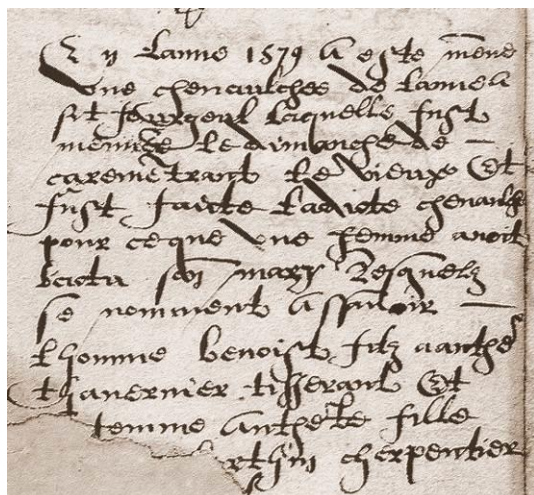 En lanne 1579 a este mene
une chevaulchee de
laquelle fust
menee le dimanche de
caremetrant le vieux Et
fust faicte ladicte chevaulche
pour ce que une femme avoit
batu son mary Lesquelz
se nomment assavoir
lhomme benoist filz
thavernier tisserant Et
femme anthete fille
rthin cherpentier